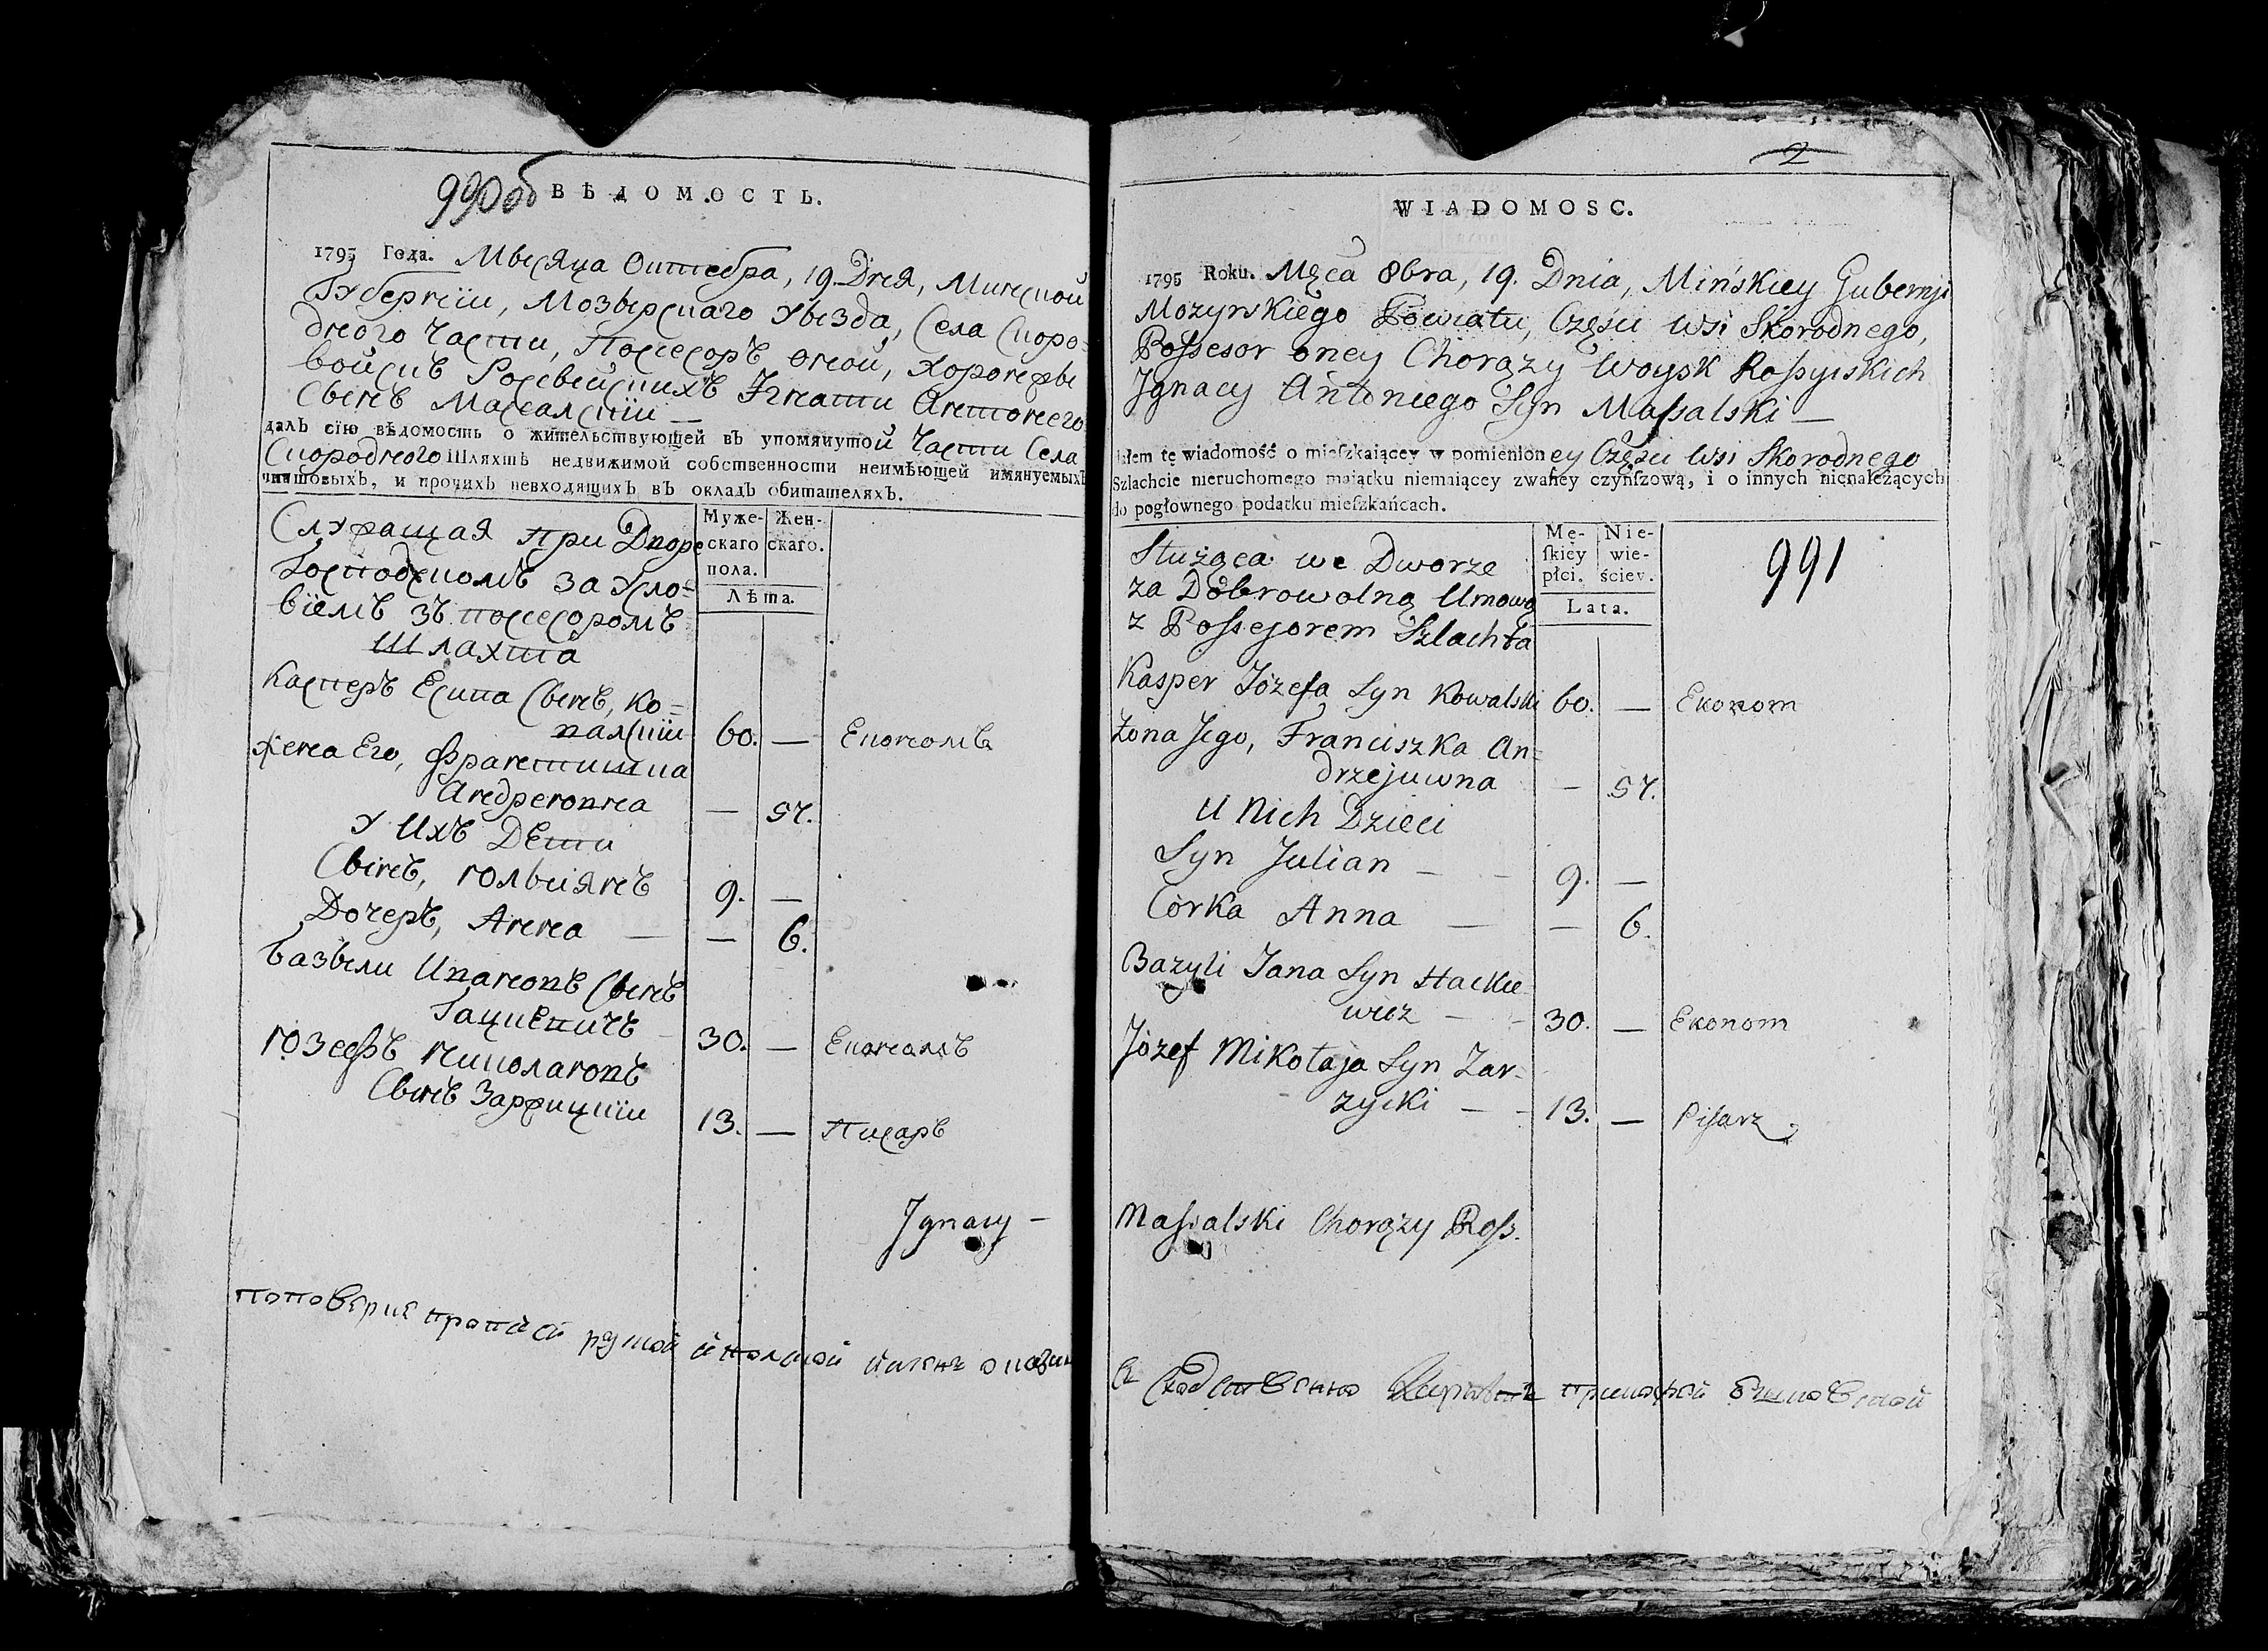 990об
ВѢДОМОСТЬ.
1795 Года. Мѣсяца Октебра, 19. Дня, Минской
Губернїи, Мозырскаго Уѣзда, Села Скоро=
дного Части, Посесоръ оной, Хоронжы
войскъ Росейскихъ Игнати Антонего
Сынъ Масалскїи —
далъ сїю вѣдомость о жительствующей въ упомянутой Части Села
Скородного Шляхтѣ недвижимой собственности неимѣющей имянуемыхъ
чиншовыхъ, и прочихъ невходящихъ въ окладъ обитателяхъ.
Муже-скаго пола. Жен-скаго.
Лѣта.
Служащая при Дворе
Господскомъ за Усло=
вїемъ зъ посесоромъ
Шляхта
Касперъ Есипа Сынъ, Ко=
валскїи 60. — Економъ
жена Его, Франтишка
Андреювна — 57.
У Ихъ Дети
Сынъ, Юльиянъ 9. —
Дочеръ, Анна — — 6.
Базыли Ивановъ Сынъ
Гацкевичъ 30. — Економъ
Юзефъ Николаювъ
Сынъ Заржицкїи 13. — Писаръ
Jgnacy —
2
WIADOMOSC.
1795 Roku. Mięca 8bra, 19. Dnia, Mińskiey Gubernji
Mozyrskiego Powiatu, Części Wsi Skorodnego,
Possesor oney Chorąży Woysk Rossyiskich
Jgnacy Antoniego Syn Massalski —
dałem tę wiadomość o mieszkaiącey w pomienioney Części Wsi Skorodnego
Szlachcie nieruchomego maiątku niemaiącey zwaney czynszową, i o innych nienależących
do pogłownego podatku mieszkańcach.
Mę-skiey płci. Nie-wie-ściey.
Lata.
991
Służąca we Dworze
za Dobrowolną Umową
z Possesorem Szlachta
Kasper Józefa Syn Kowalski 60. — Ekonom
Żona Jego, Franciszka An=
drzejuwna — 57.
U Nich Dzieci
Syn Julian — — 9. —
Córka Anna — — 6.
Bazyli Jana Syn Hackie-
wicz — — 30. — Ekonom
Józef Mikołaja Syn Zar-
zycki — — 13. — Pisarz
Massalski Chorąży Ross.